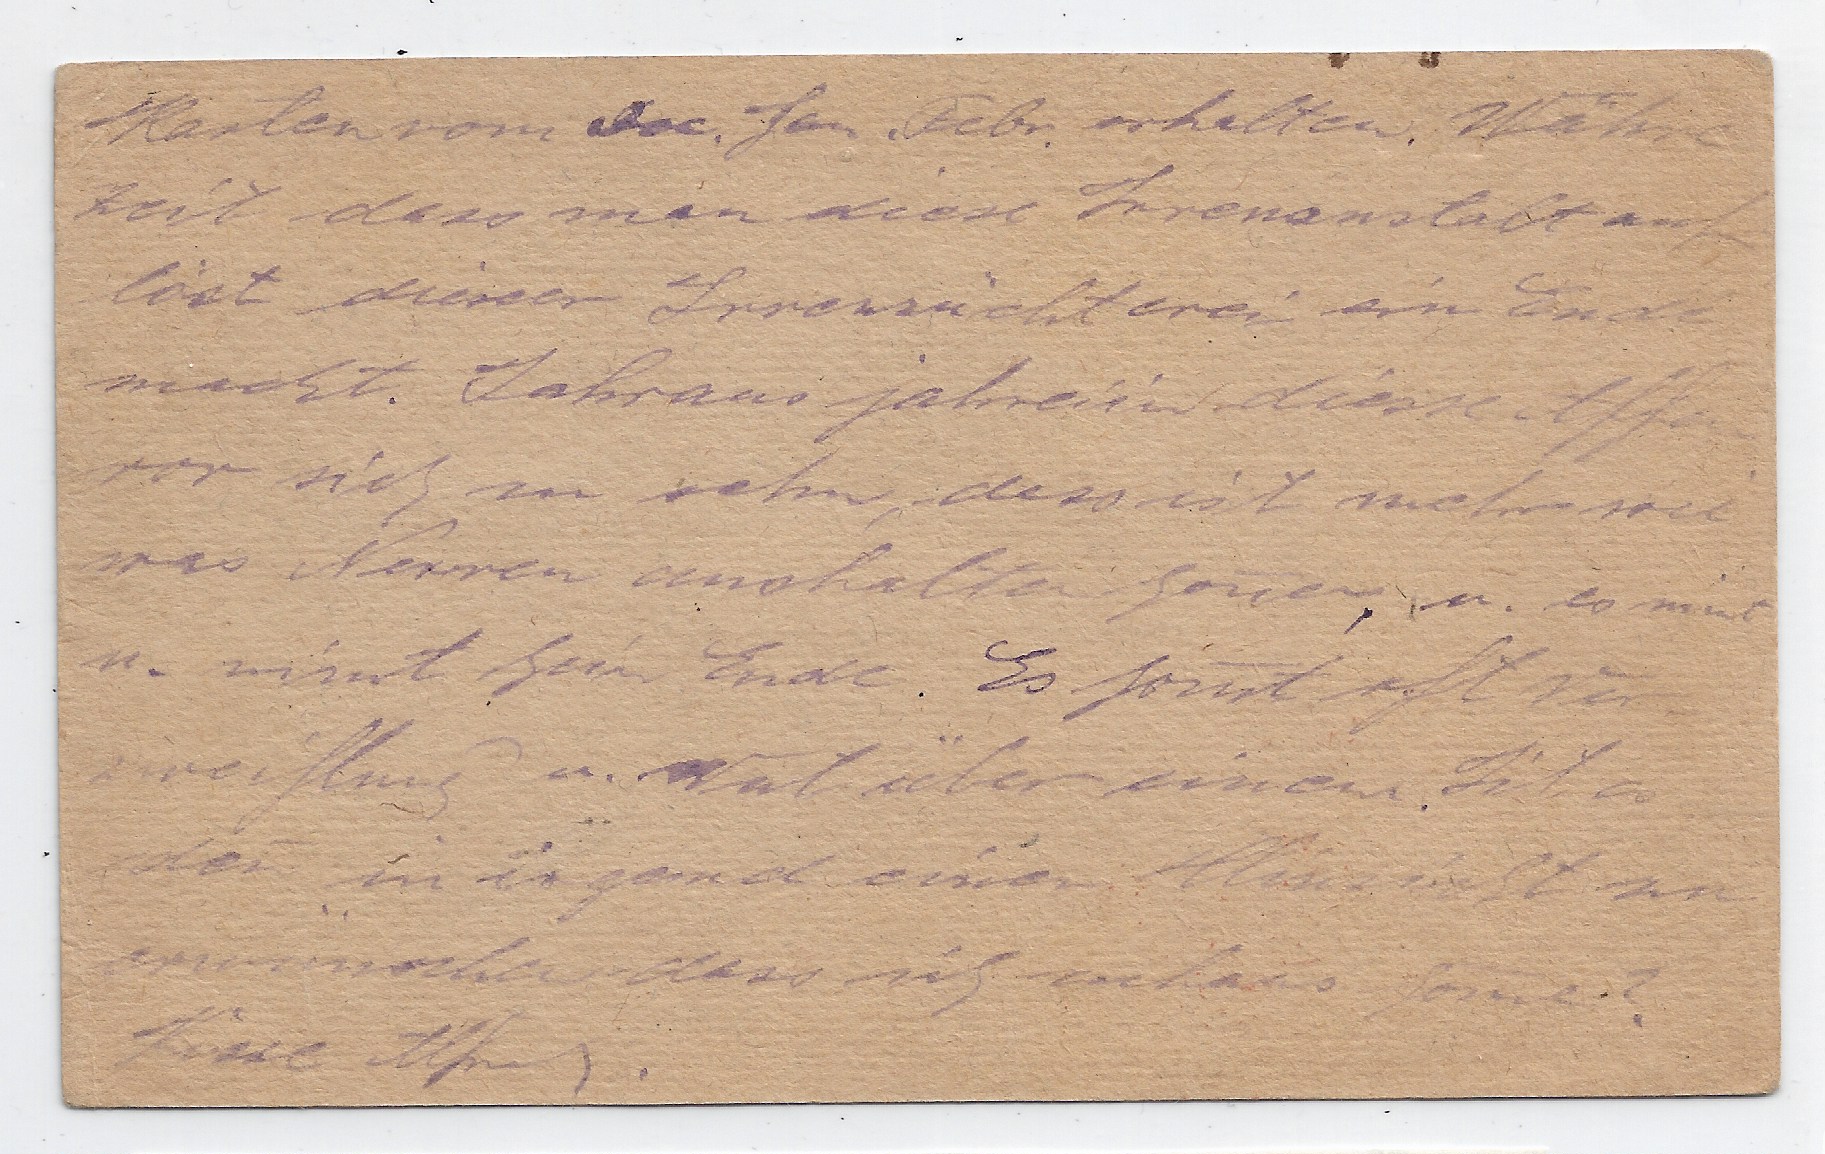 Karten vom Dec. Jan. Febr. erhalten. Währe
Zeit dass man diese Irrenanstalt auf
löst dieser Irrenzüchterei ein Ende
macht. Jahraus jahrein diese Affen
vor sich zu sehn, dass ist mehr wei
was Nerven aushalten könen, u. es nimt
u. nimt kein Ende. Es komt oft ver
zweiflung u. Wut über einen. Ist es
den in irgend einer Hinsicht zu
erwünschen dass ich nehaus kome?
Küsse Alfred.